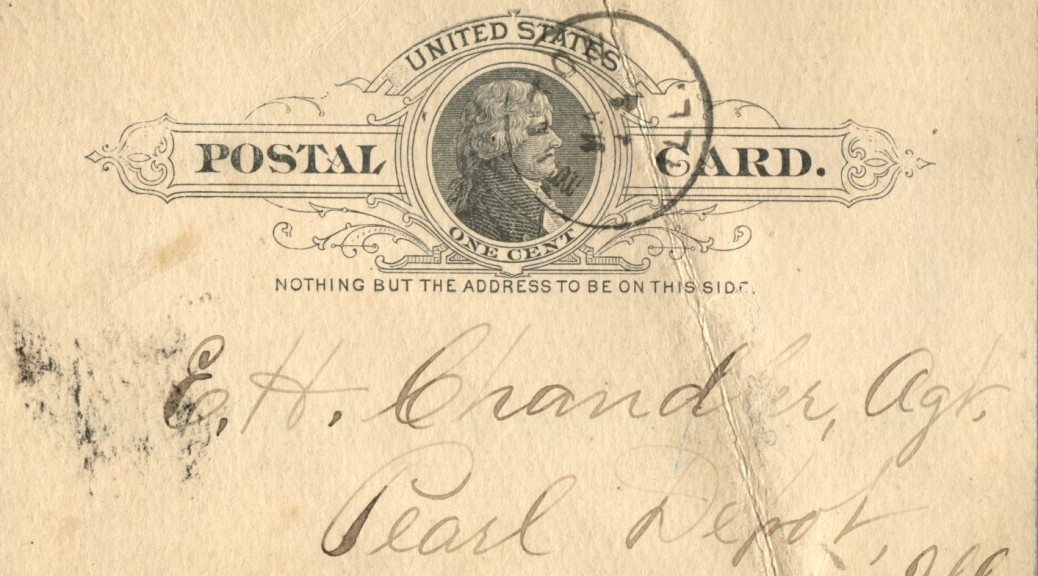 UNITED STATES
POSTAL CARD.
ONE CENT
ILL.
NOTHING BUT THE ADDRESS TO BE ON THIS SIDE.
E. H. Chandler, Agt.
Pearl Depot,
Ill